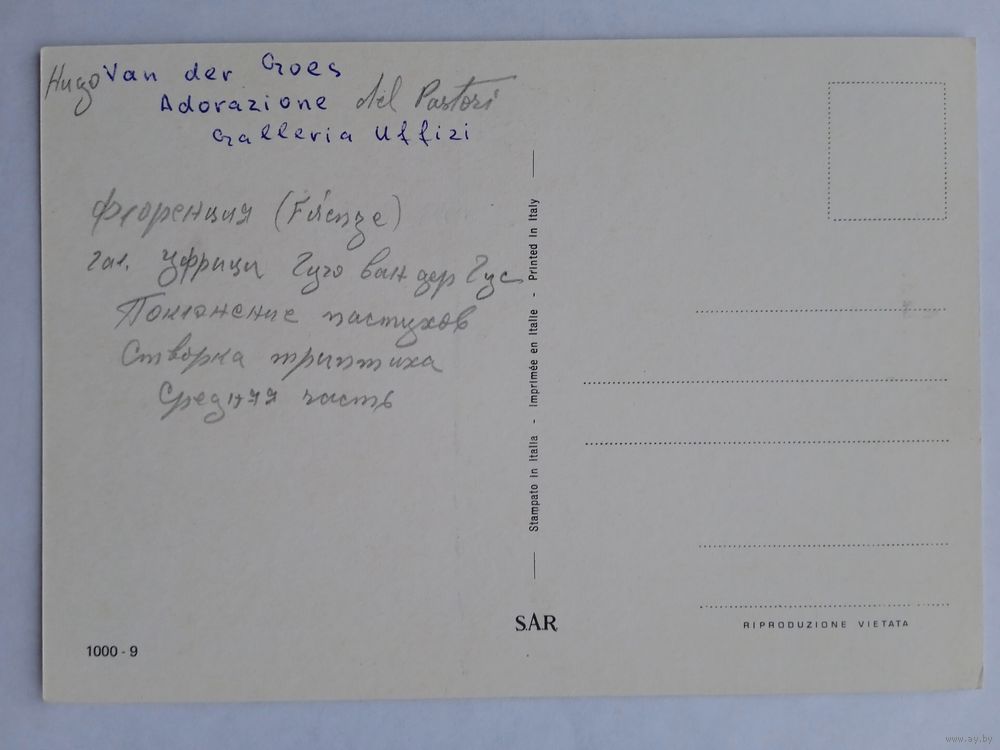 Hugo Van der Goes
Adorazione del Pastori
Galleria Uffizi
Флоренция (Firenze)
гал. Уфрици Гуго ван дер Гус
Поклонение пастухов
Створка триптиха
Средняя часть
Stampato in Italia - Imprimée en Italie - Printed in Italy
SAR
RIPRODUZIONE VIETATA
1000 - 9
www.ay.by